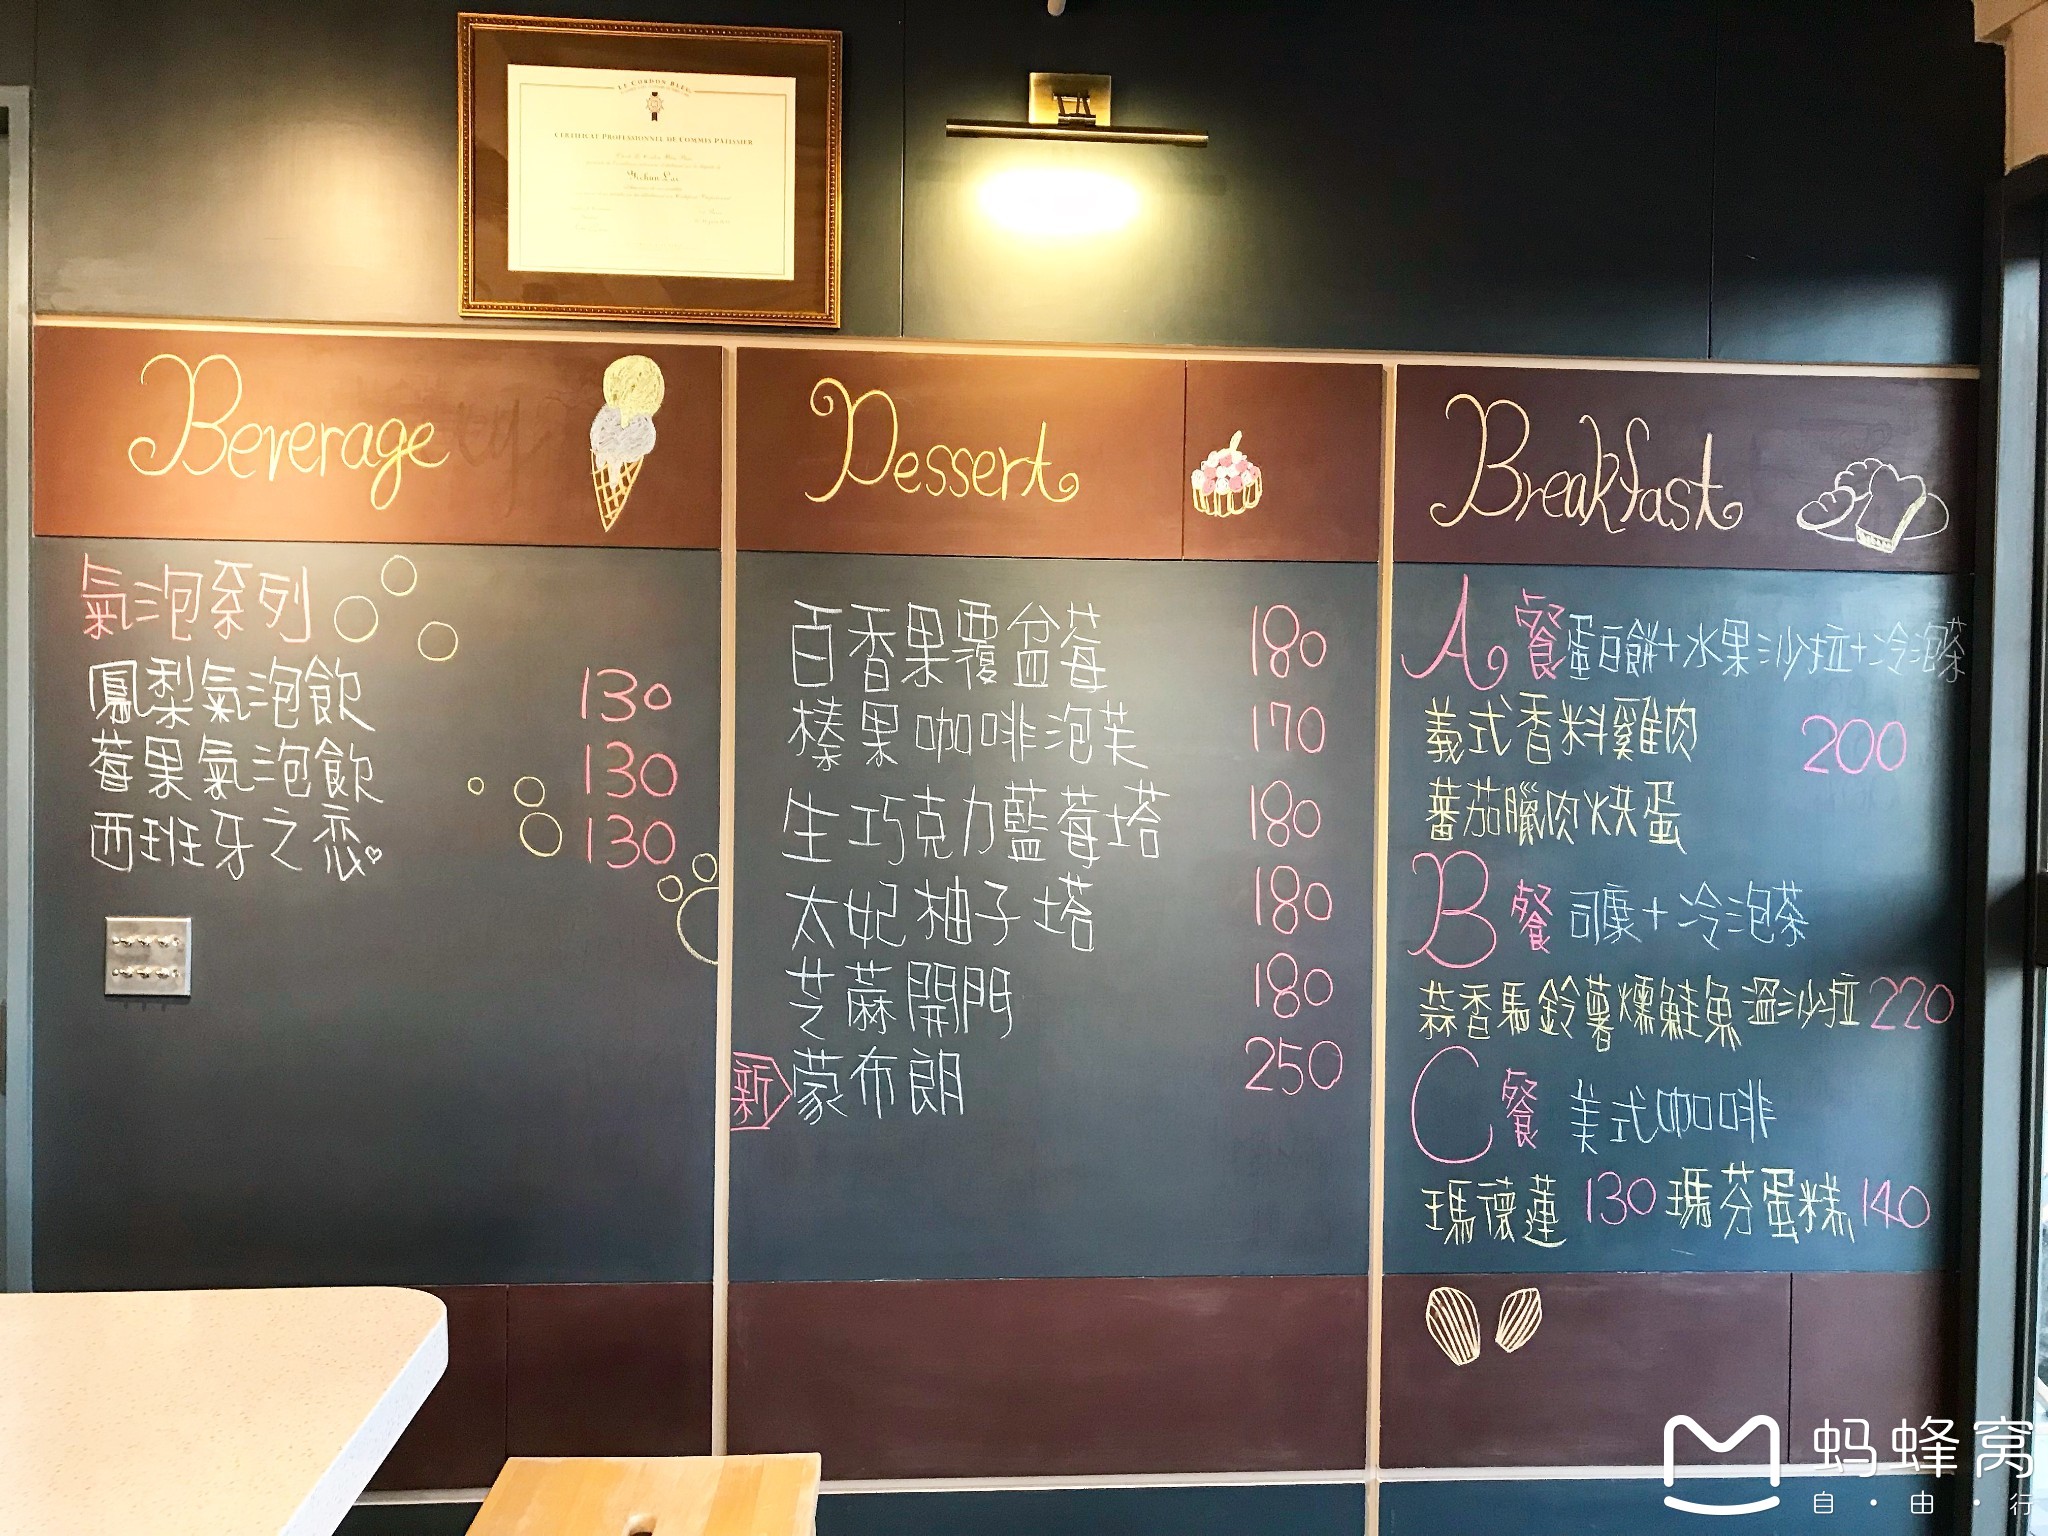 LE CORDON BLEU
CERTIFICAT PROFESSIONNEL DE COMMIS PATISSIER
Beverage
氣泡系列
鳳梨氣泡飲 130
莓果氣泡飲 130
西班牙之恋 130
Dessert
百香果覆盆莓 180
榛果咖啡泡芙 170
生巧克力藍莓塔 180
太妃柚子塔 180
芝蔴開門 180
新 蒙布朗 250
Breakfast
A餐 蛋白餅+水果沙拉+冷泡茶
義式香料雞肉 200
蕃茄臘肉烘蛋
B餐 司康+冷泡茶
蒜香馬鈴薯燻鮭魚溫沙拉 220
C餐 美式咖啡
瑪德蓮 130 瑪芬蛋糕 140
蚂蜂窝
自·由·行